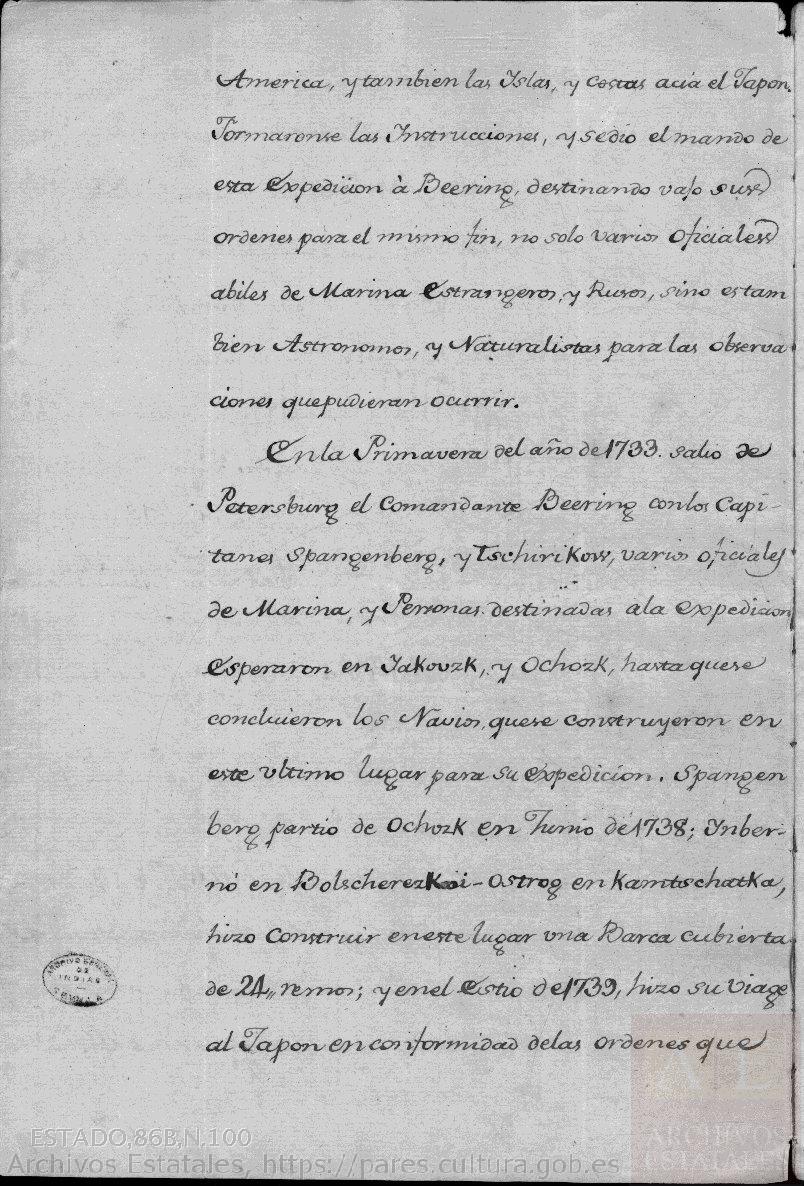 America, y tambien las Yslas, y costas acia el Japon.
Formaronse las Ynstrucciones, y se dio el mando de
esta Expedicion à Beering, destinando vajo sus
ordenes para el mismo fin, no solo varios oficiales
abiles de Marina Estrangeros, y Rusos, sino es tam
bien Astronomos, y Naturalistas para las observa
ciones que pudieran ocurrir.
En la Primavera del año de 1733. salio de
Petersburg el Comandante Beering con los Capi-
tanes Spangenberg, y Tschirikow, varios oficiales
de Marina, y Personas destinadas a la expedicion
Esperaron en Yakouzk, y Ochozk, hasta que se
concluieron los Navios, que se construyeron en
este ultimo lugar para su expedicion. Spangen
berg partio de Ochozk en Junio de 1738; Ynber-
nó en Bolscherezkoi-Ostrog en Kamtschatka,
hizo Construir en este lugar una Barca cubierta
de 24,, remos; y en el Estio de 1739, hizo su viage
al Japon en conformidad de las ordenes que
ARCHIVO GENERAL
DE
INDIAS
SEVILLA
AE
ARCHIVOS
ESTATALES
ESTADO,86B,N,100
Archivos Estatales, https://pares.cultura.gob.es